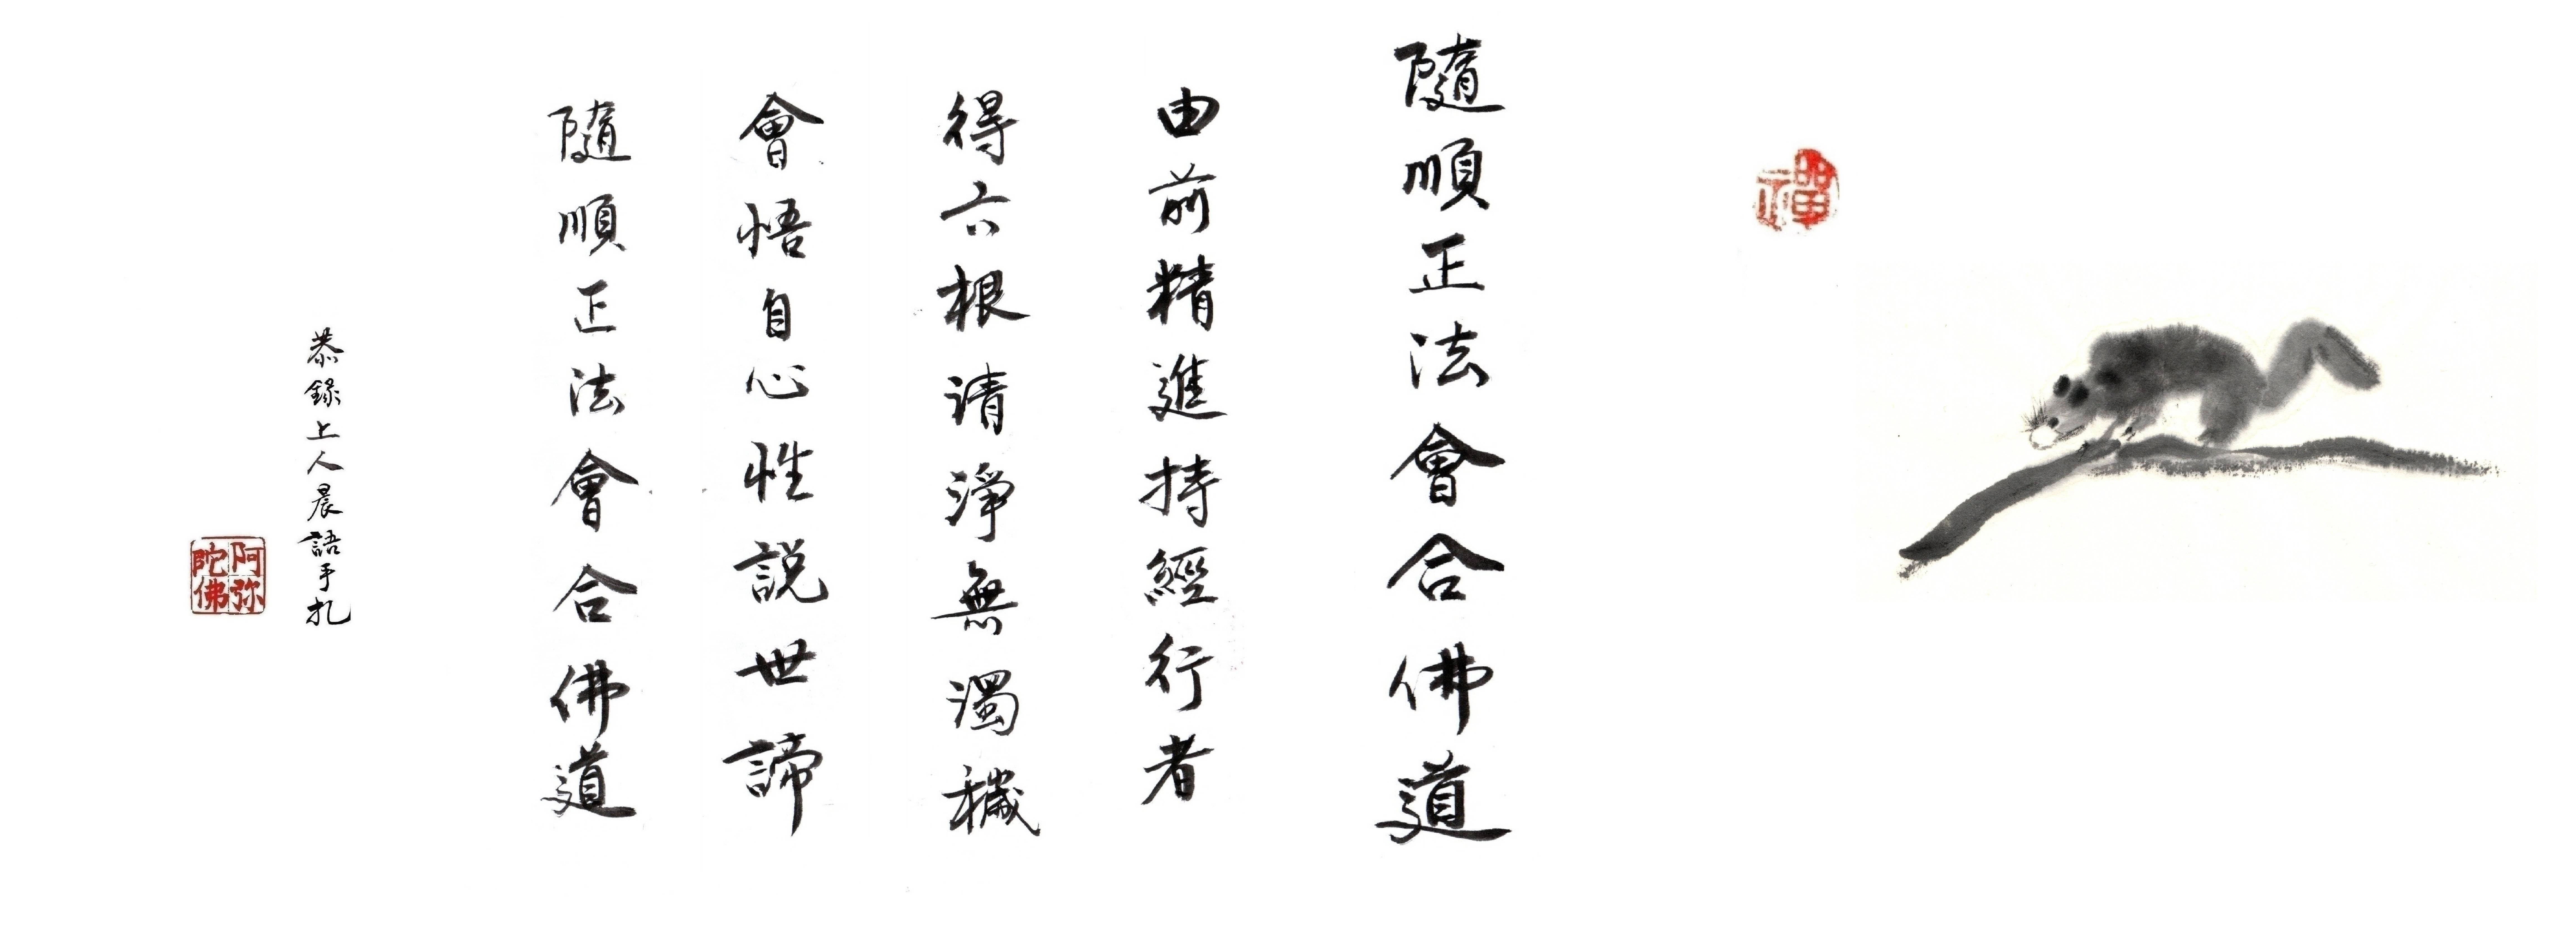 禪
隨順正法會合佛道
由前精進持經行者
得六根清淨無濁穢
會悟自心性説世諦
隨順正法會合佛道
恭錄上人晨語手札
阿弥
陀佛